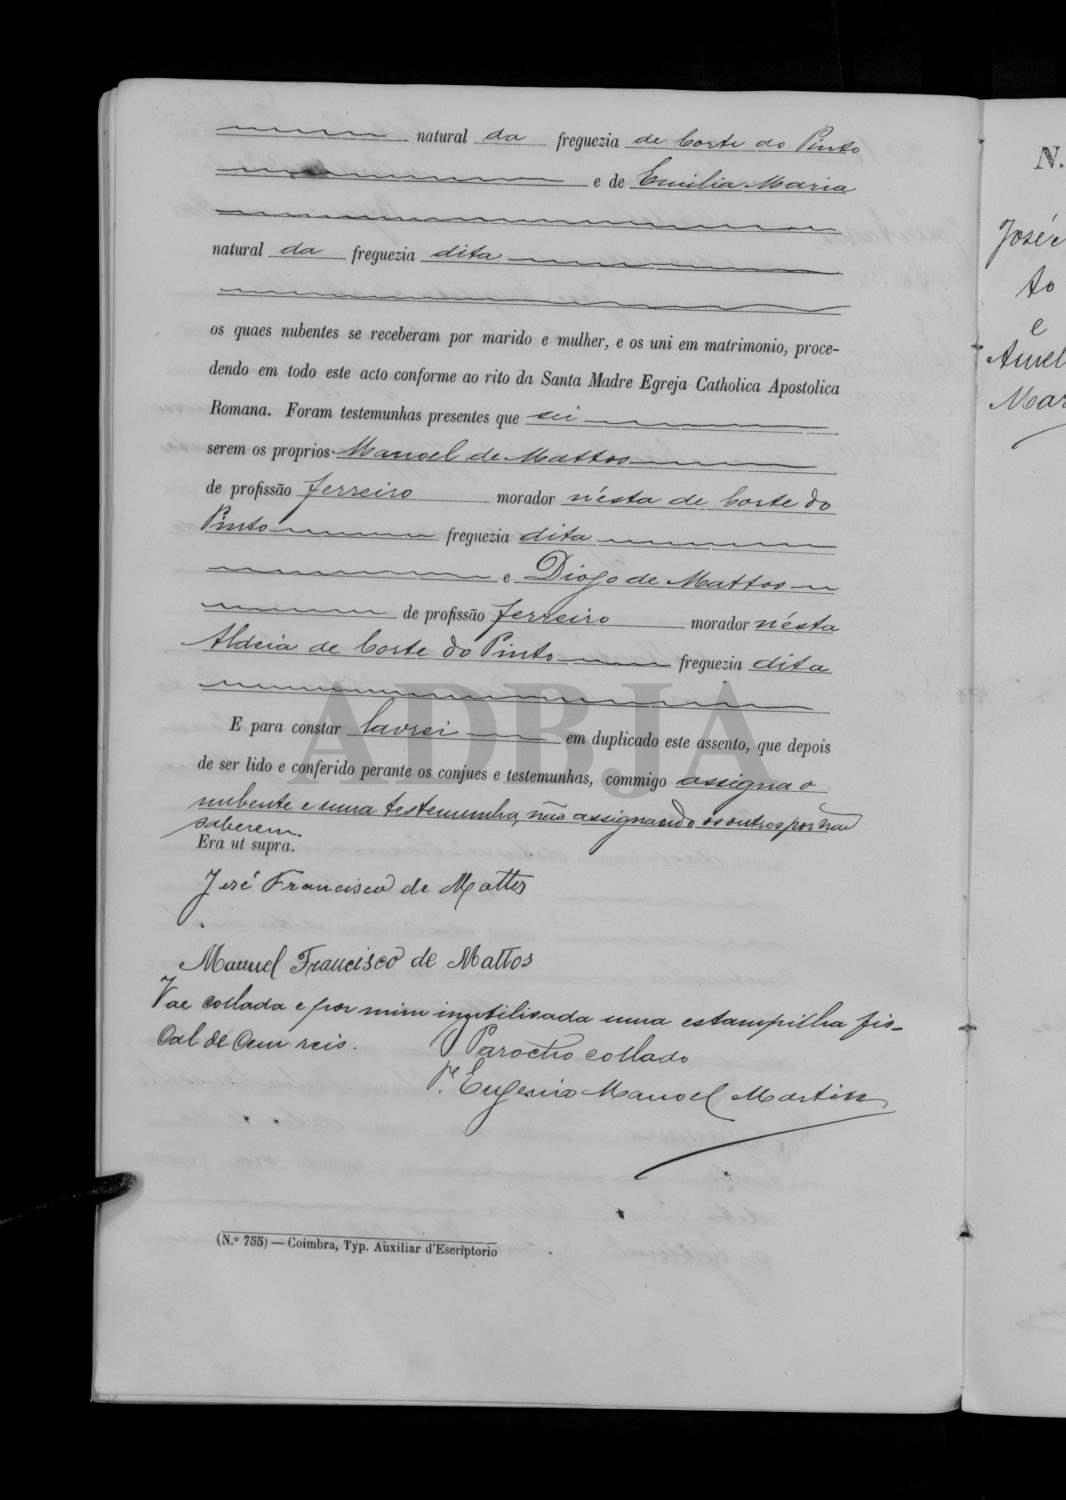 natural da freguezia de Corte do Pinto
e de Emilia Maria
natural da freguezia dita
os quaes nubentes se receberam por marido e mulher, e os uni em matrimonio, proce-
dendo em todo este acto conforme ao rito da Santa Madre Egreja Catholica Apostolica
Romana. Foram testemunhas presentes que sei
serem os proprios Manoel de Mattos
de profissão ferreiro morador n'ésta de Corte do
Pinto freguezia dita
e Diogo de Mattos
de profissão ferreiro morador n'ésta
Aldeia de Corte do Pinto freguezia dita
E para constar lavrei em duplicado este assento, que depois
de ser lido e conferido perante os conjues e testemunhas, commigo assigna o
nubente e uma testemunha, não assignando os outros por não
saberem.
Era ut supra.
José Francisco de Mattos
Manuel Francisco de Mattos
Vae collada e por mim inutilisada uma estampilha fis-
cal de cem reis.
O Parocho collado
P.e Eugenio Manoel Martins
(N.º 755) — Coimbra, Typ. Auxiliar d'Escriptorio
ADBJA
N.
José
to
e
Amel
Mar